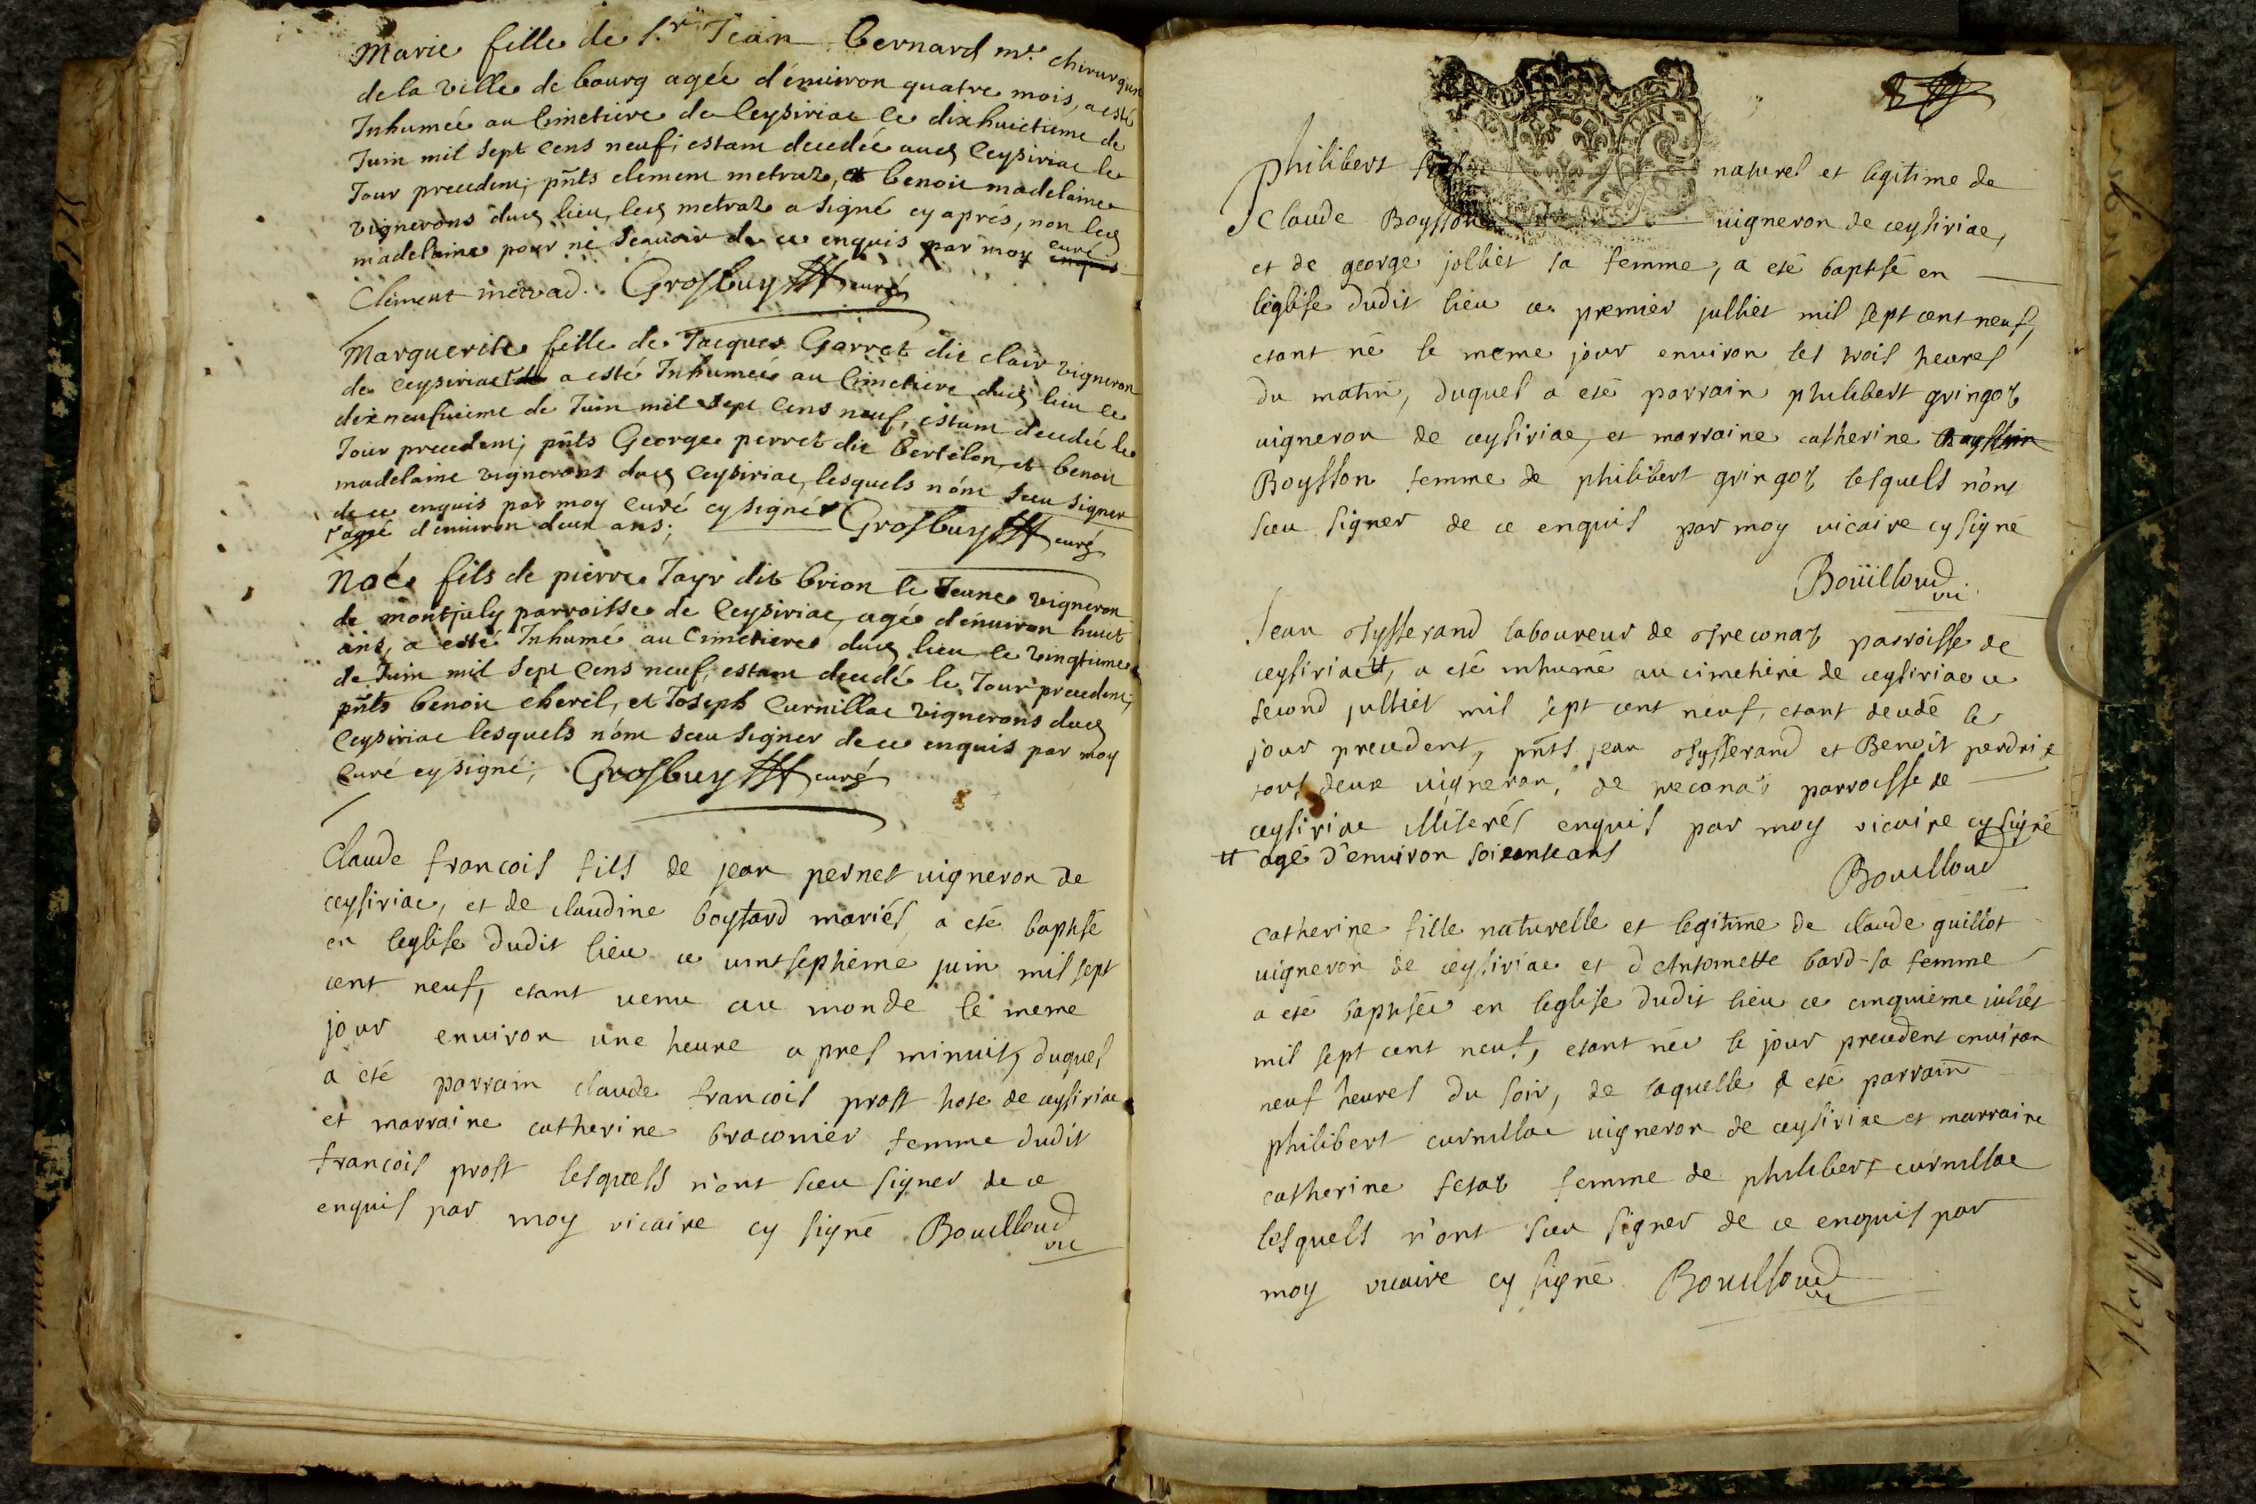 Marie fille de Sr Jean bernard me chirurgien
de la ville de bourg agéé d'énuiron quatre mois, a esté
Inhumée au Cimetiere de Ceysiriac le dixhuictieme de
Juin mil sept Cens neuf, estant decedéé aud Ceysiriac le
Jour precedent; pñts clement metraz, et benoit madelaine
vignerons dud lieu, led metraz a signé cy aprés, non led
madelaine pour ne scauoir de ce enquis par moy curé
Clement metrad. Grosbuy curé
Marguerite fille de Jacques Garret dit clair vigneron
de Ceysiriac a esté Inhuméé au Cimetiere dud lieu le
dixneufuieme de Juin mil sept Cens neuf, estant decedéé le
Jour precedent; pñts George perret dit bertelon, et benoit
madelaine vignerons dud Ceysiriac, lesquels n'ónt sceu signer
de ce enquis par moy curé cy signé
r agéé d'énuiron deux ans; Grosbuy curé
Noé fils de pierre Jayr dit brion le Jeune vigneron
de montjuly parroisse de Ceysiriac, agé d'énuiron huict
ans, a esté Inhumé au Cimetiere dud lieu le vingtieme
de Juin mil sept Cens neuf, estant decedé le Jour precedent;
pñts benoit cheril, et Joseph Curnillac vignerons dud
Ceysiriac lesquels n'ónt sceu signer de ce enquis par moy
Curé cy signé; Grosbuy curé
Claude francois fils de jean pernet uigneron de
ceysiriac, et de claudine boystard mariés a eté baptisé
en leglise dudit lieu ce uintseptiéme juin mil sept
cent neuf, etant uenu au monde le meme
jour enuiron une heure apres minuit, duquel
a eté parrain claude francois prost hote de ceysiriac
et marraine catherine braconier femme dudit
francois prost lesquels n'ont sceu signer de ce
enquis par moy vicaire cy signé Bouilloud
vic
philibert fils naturel et legitime de
Claude Boysson uigneron de ceysiriac,
et de george jolliet sa femme, a eté baptisé en
leglise dudit lieu ce premier julliet mil sept cent neuf,
etant né le meme jour enuiron les trois heures
du matin, duquel a eté parrain philibert gringoz
uigneron de ceysiriac, et marraine catherine
Boysson femme de philibert gringoz lesquels n'ont
sceu signer de ce enquis par moy uicaire cy signé
Boüilloud
vic
Jean tysserand laboureur de treconaz parroisse de
ceysiriac #, a eté inhumé au cimetiere de ceysiriac ce
second julliet mil sept cent neuf, etant decedé le
jour precedent, pñts jean tysserand et Benoit perdrix
tous deux uigneron, de treconas parroisse de
ceysiriac illiterés enquis par moy vicaire cy signé
# agé d'enuiron soixante ans Bouilloud
catherine fille naturelle et legitime de claude guillot
uigneron de ceysiriac et d Antoinette bard sa femme
a eté baptisée en leglise dudit lieu ce cinquieme iulliet
mil sept cent neuf, etant née le jour precedent enuiron
neuf heures du soir, de laquelle a eté parrain
philibert curnillac uigneron de ceysiriac et marraine
catherine fetaz femme de philibert curnillac
lesquels n'ont sceu signer de ce enquis par
moy vicaire cy signé Bouilloud
vic